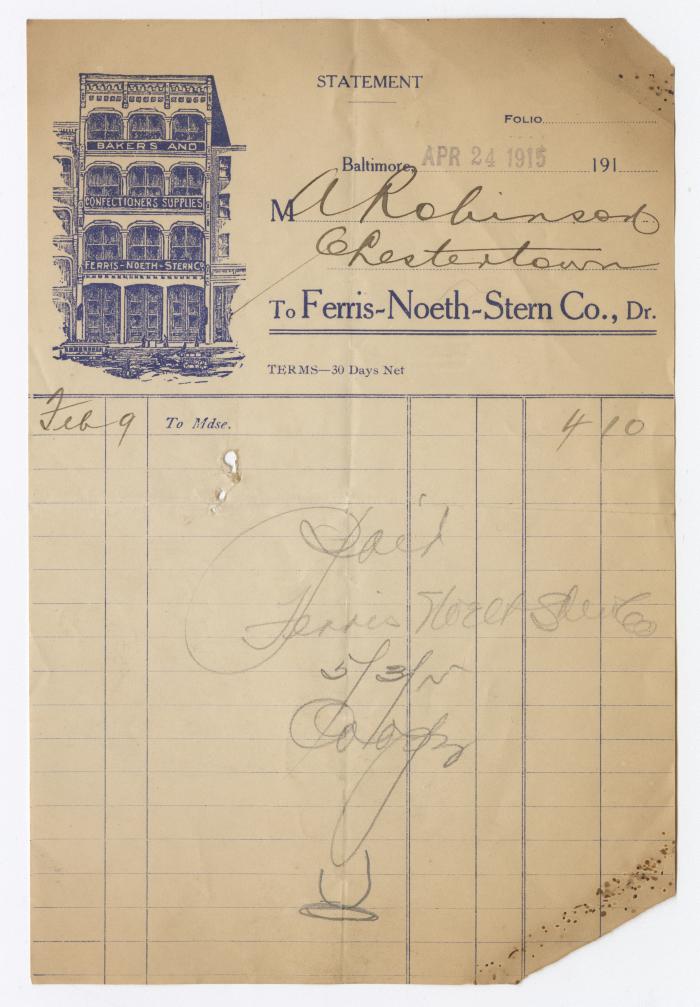 STATEMENT
FOLIO
Baltimore, APR 24 1915 191
M A Robinson
Chestertown
To Ferris-Noeth-Stern Co., Dr.
TERMS—30 Days Net
BAKERS AND
CONFECTIONERS SUPPLIES
FERRIS-NOETH-STERN Co
Feb 9 To Mdse. 4 10
Paid
Ferris Noeth Stern Co
5/3/15